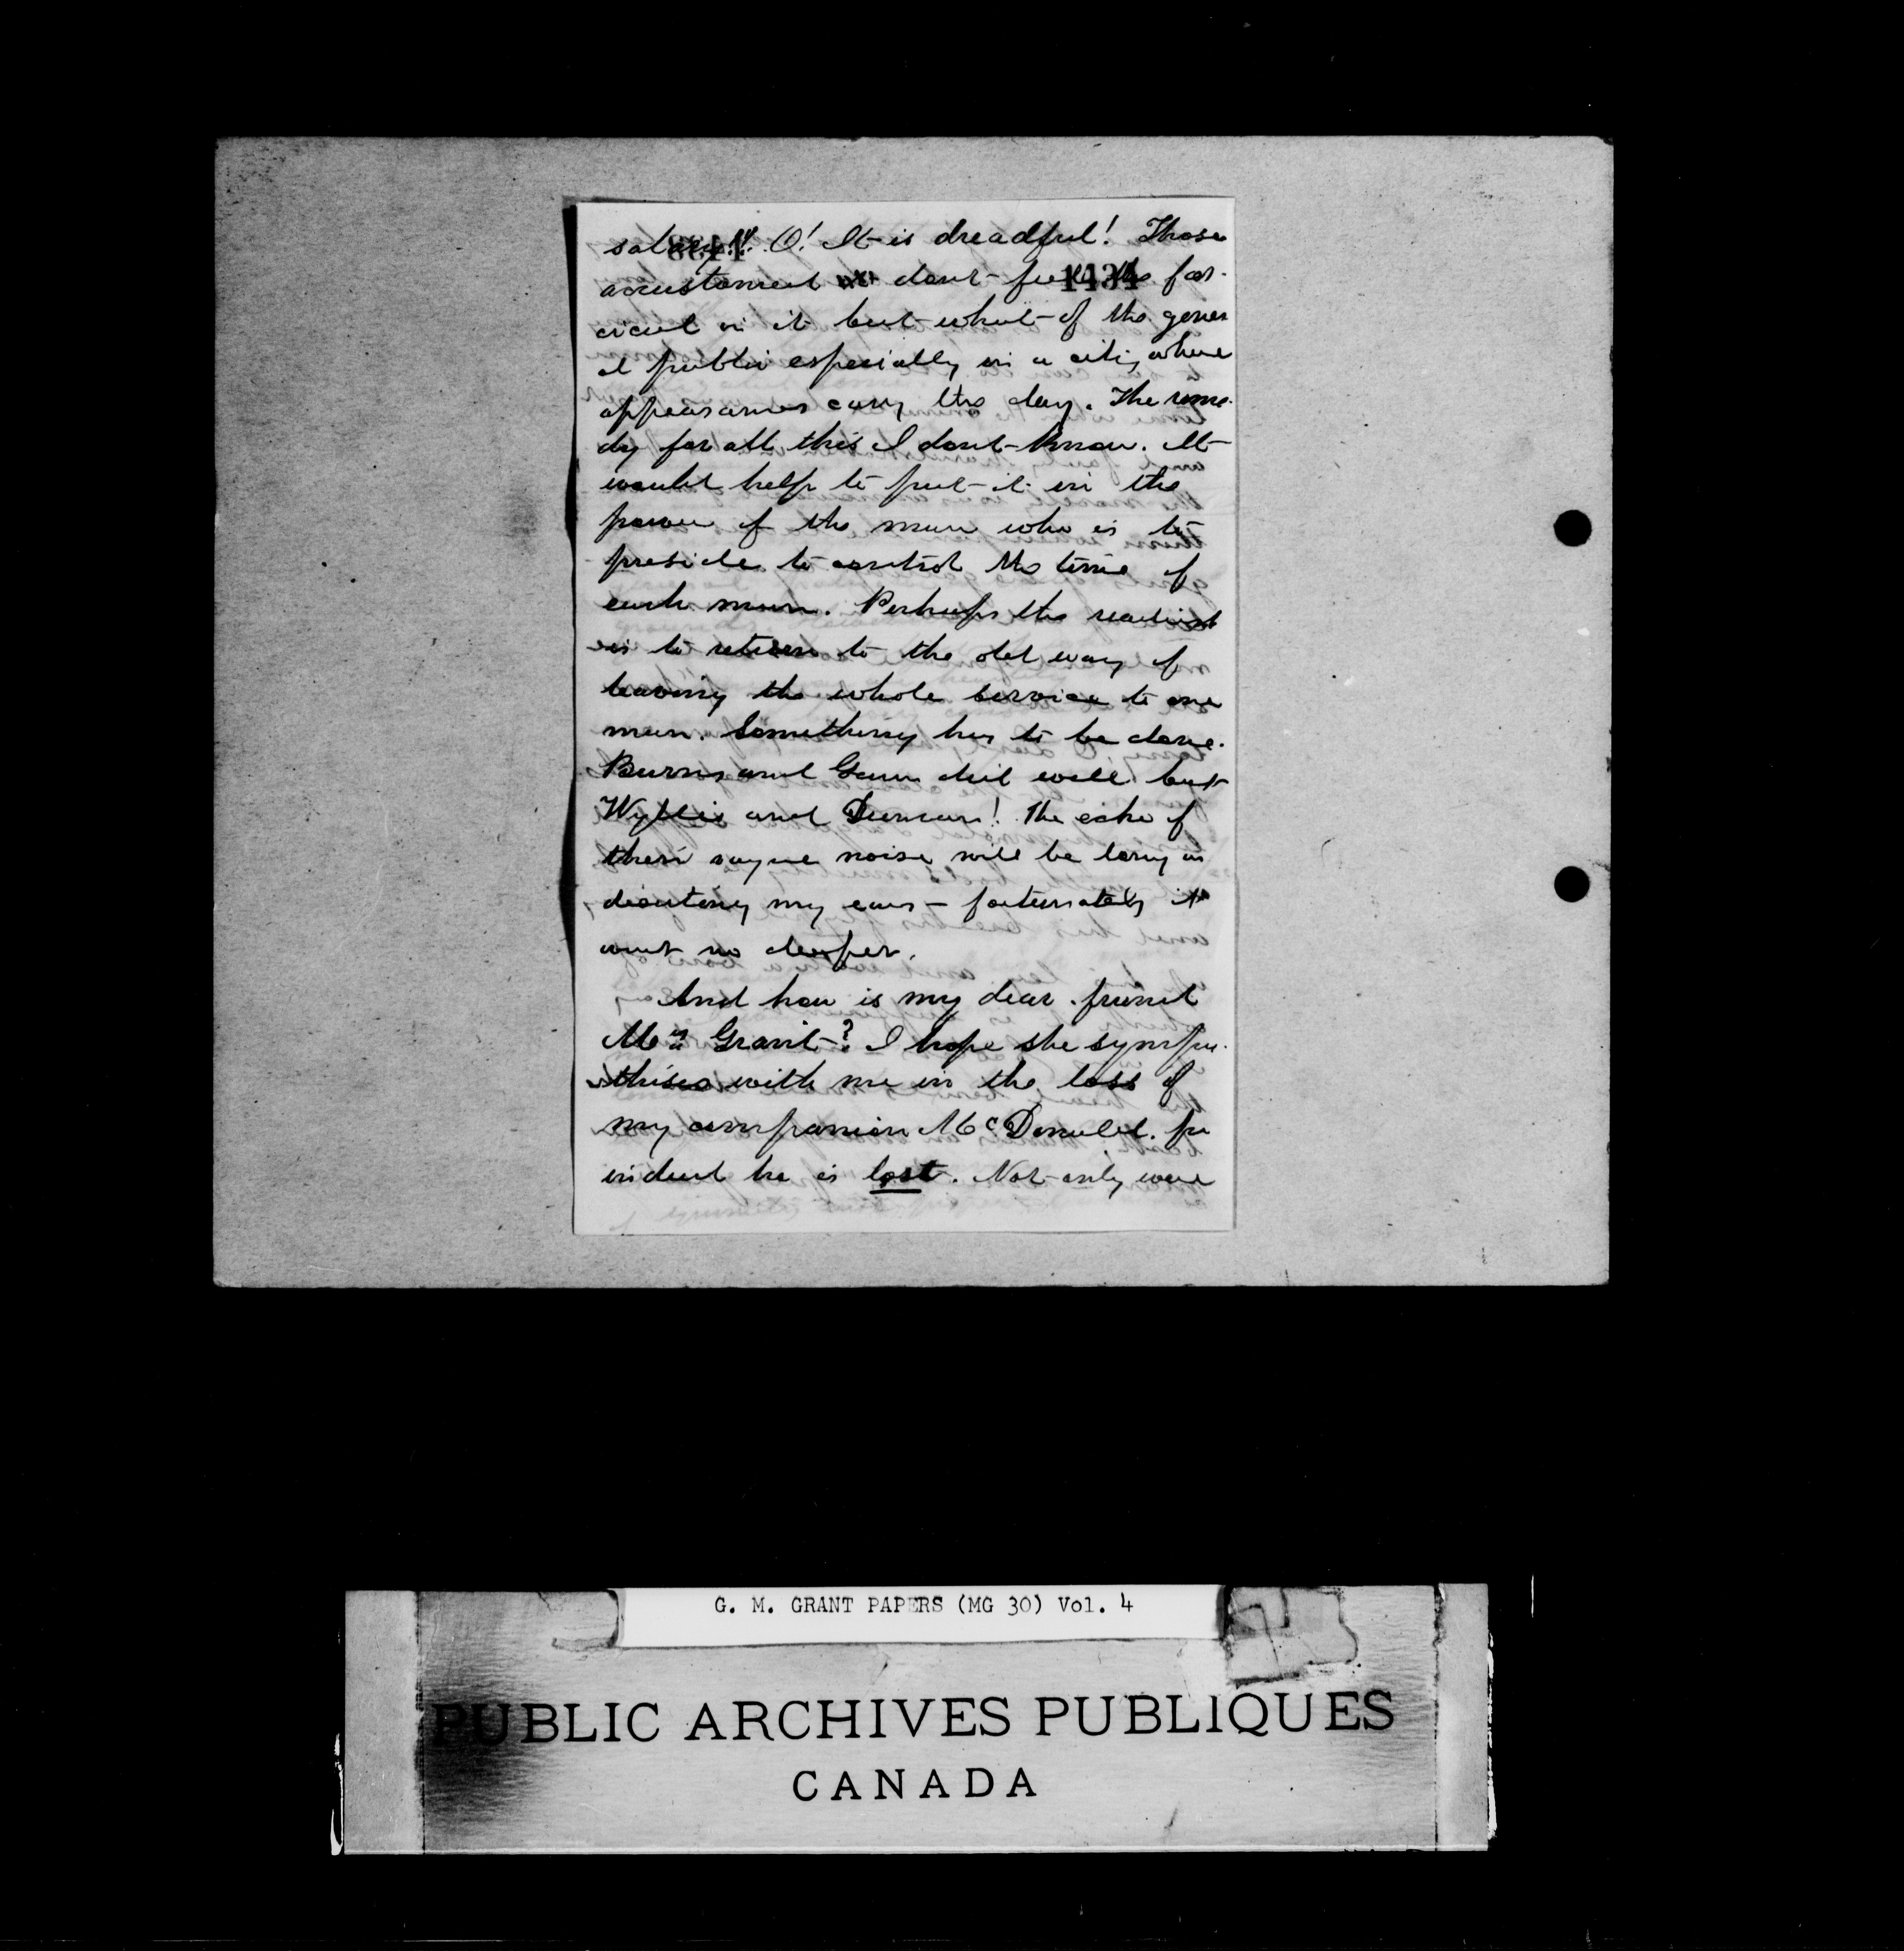 salary!! O! It is dreadful! Those
1434
accustomed dont feel the far-
cical in it but what of the gener
al public especially in a city where
appearances carry the day. The reme-
dy for all this I dont know. It
would help to put it in the
power of the man who is to
preside to control the time of
each man. Perhaps the readiest
is to return to the old way of
leaving the whole service to one
man. Something has to be done.
Burns and Gunn did well but
Wyllie and Duncan! The echo of
their noise will be long in
my ears - fortunately it
went no deeper.
And how is my dear friend
Mrs Grant? I hope she sympa-
thises with me in the loss of
my companion McDonald. for
indeed he is lost. Not only were
G. M. GRANT PAPERS (MG 30) Vol. 4
PUBLIC ARCHIVES PUBLIQUES
CANADA